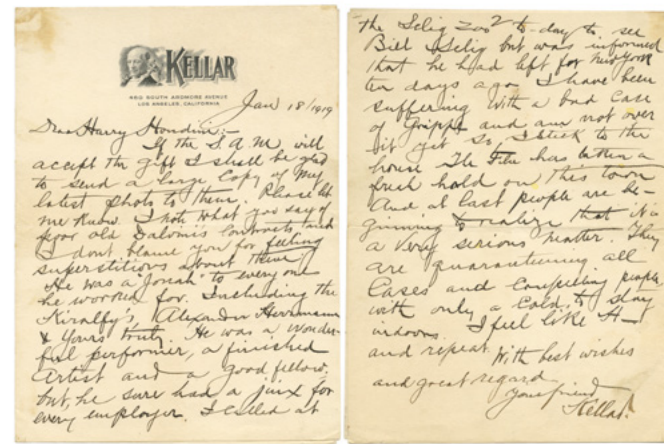 KELLAR
460 SOUTH ARDMORE AVENUE
LOS ANGELES, CALIFORNIA
Jan 18/1919
Dear Harry Houdini:-
If the S.A.M. will
accept the gift I shall be glad
to send a large copy of my
latest photo to them. Please let
me know. I note what you say of
poor old contracts, and
I dont blame you for feeling
superstitious about them.
"He was a Jonah" to every one
he worked for. Including the
Kiralfy's, Alexander Herrmann
& Yours truly. He was a wonder-
ful performer, a finished
Artist and a good fellow,
but, he sure had a jinx for
every employer. I called at
the Selig Zoo to-day to see
Bill Selig but was informed
that he had left for New York
ten days ago. I have been
suffering with a bad case
of Grippe and am not over
it yet so I stick to the
house. The Flu has taken a
fresh hold on this town
And at last people are be-
ginning to realize that it is
a very serious matter. They
are quarantining all
Cases and Compelling people
with only a Cold, to stay
indoors. I feel like H—
and repeat. With best wishes
and great regard
Your friend
Kellar.